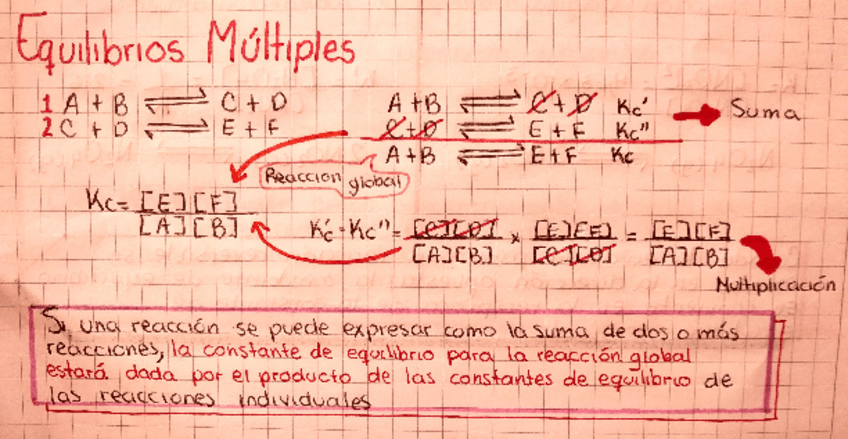 Equilibrios Múltiples
1 A + B ⇌ C + D
2 C + D ⇌ E + F
A + B ⇌ C + D Kc'
C + D ⇌ E + F Kc"
A + B ⇌ E + F Kc
→ Suma
Reaccion global
Kc = [E][F] / [A][B]
Kc' · Kc" = [C][D] / [A][B] × [E][F] / [C][D] = [E][F] / [A][B]
Multiplicación
Si una reacción se puede expresar como la suma de dos o más
reacciones, la constante de equilibrio para la reacción global
estará dada por el producto de las constantes de equilibrio de
las reacciones individuales